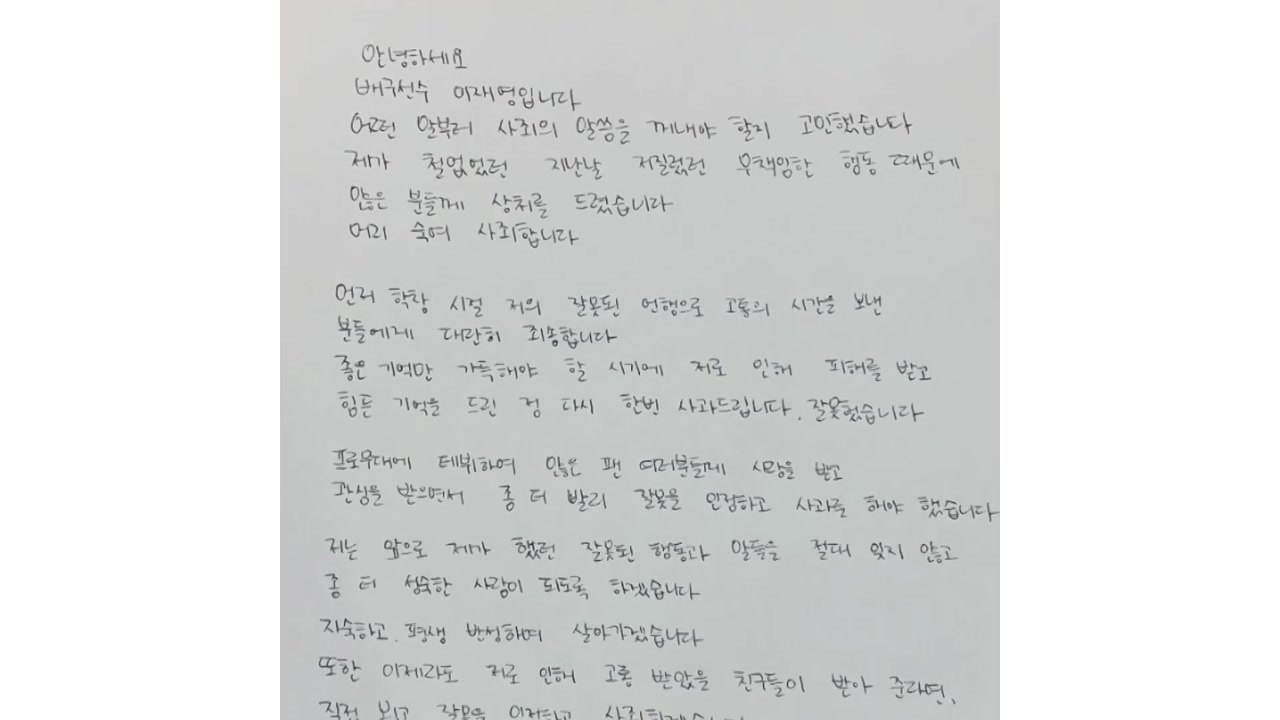 안녕하세요
배구선수 이재영입니다
어떤 말부터 사죄의 말씀을 꺼내야 할지 고민했습니다
제가 철없었던 지난날 저질렀던 무책임한 행동 때문에
많은 분들께 상처를 드렸습니다
머리 숙여 사죄합니다
먼저 학창 시절 저의 잘못된 언행으로 고통의 시간을 보낸
분들에게 대단히 죄송합니다
좋은 기억만 가득해야 할 시기에 저로 인해 피해를 받고
힘든 기억을 드린 점 다시 한번 사과드립니다. 잘못했습니다
프로무대에 데뷔하여 많은 팬 여러분들께 사랑을 받고
관심을 받으면서 좀 더 빨리 잘못을 인정하고 사과를 해야 했습니다
저는 앞으로 제가 했던 잘못된 행동과 말들을 절대 잊지 않고
좀 더 성숙한 사람이 되도록 하겠습니다
자숙하고 평생 반성하며 살아가겠습니다
또한 이제라도 저로 인해 고통 받았을 친구들이 받아 준다면,
직접 뵙고 잘못을 인정하고 사죄하겠습니다